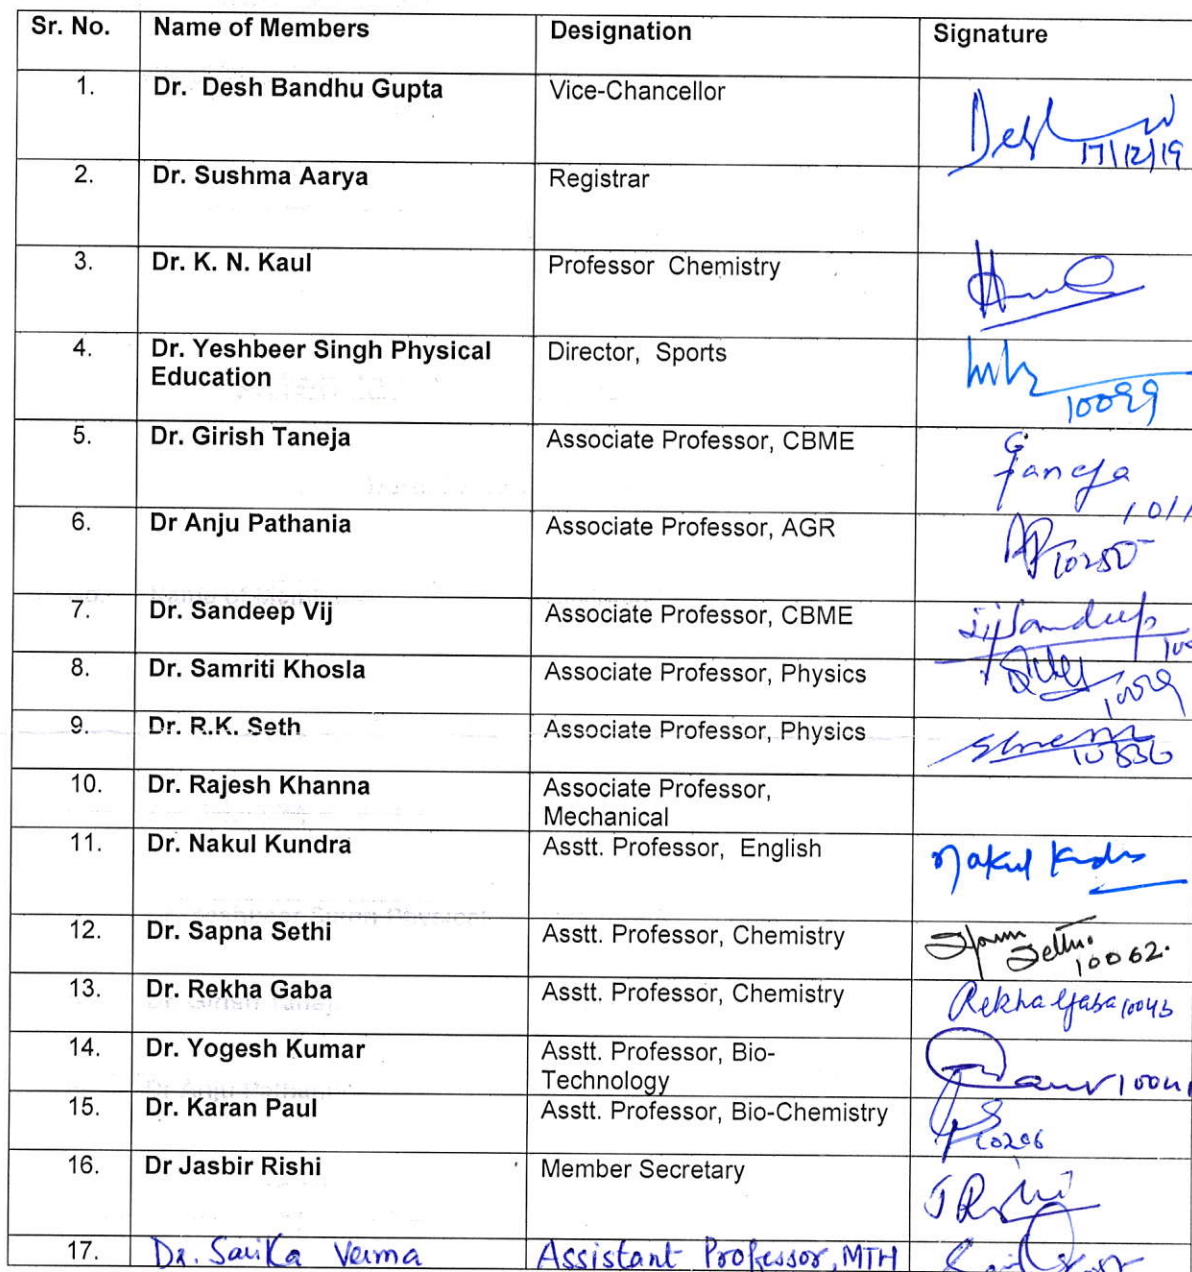 Sr. No. Name of Members Designation Signature
1. Dr. Desh Bandhu Gupta Vice-Chancellor
17/12/19
2. Dr. Sushma Aarya Registrar
3. Dr. K. N. Kaul Professor Chemistry
4. Dr. Yeshbeer Singh Physical Director, Sports
Education
10099
5. Dr. Girish Taneja Associate Professor, CBME
G
Taneja
6. Dr Anju Pathania Associate Professor, AGR
AP 10250
7. Dr. Sandeep Vij Associate Professor, CBME
Sandeep
8. Dr. Samriti Khosla Associate Professor, Physics
9. Dr. R.K. Seth Associate Professor, Physics
10. Dr. Rajesh Khanna Associate Professor,
Mechanical
11. Dr. Nakul Kundra Asstt. Professor, English Nakul Kundra
12. Dr. Sapna Sethi Asstt. Professor, Chemistry Sapna
Sethi
10062.
13. Dr. Rekha Gaba Asstt. Professor, Chemistry Rekha Gaba 10043
14. Dr. Yogesh Kumar Asstt. Professor, Bio-
Technology
15. Dr. Karan Paul Asstt. Professor, Bio-Chemistry
10206
16. Dr Jasbir Rishi Member Secretary
J Rishi
17. Dr. Sarika Verma Assistant Professor, MTH